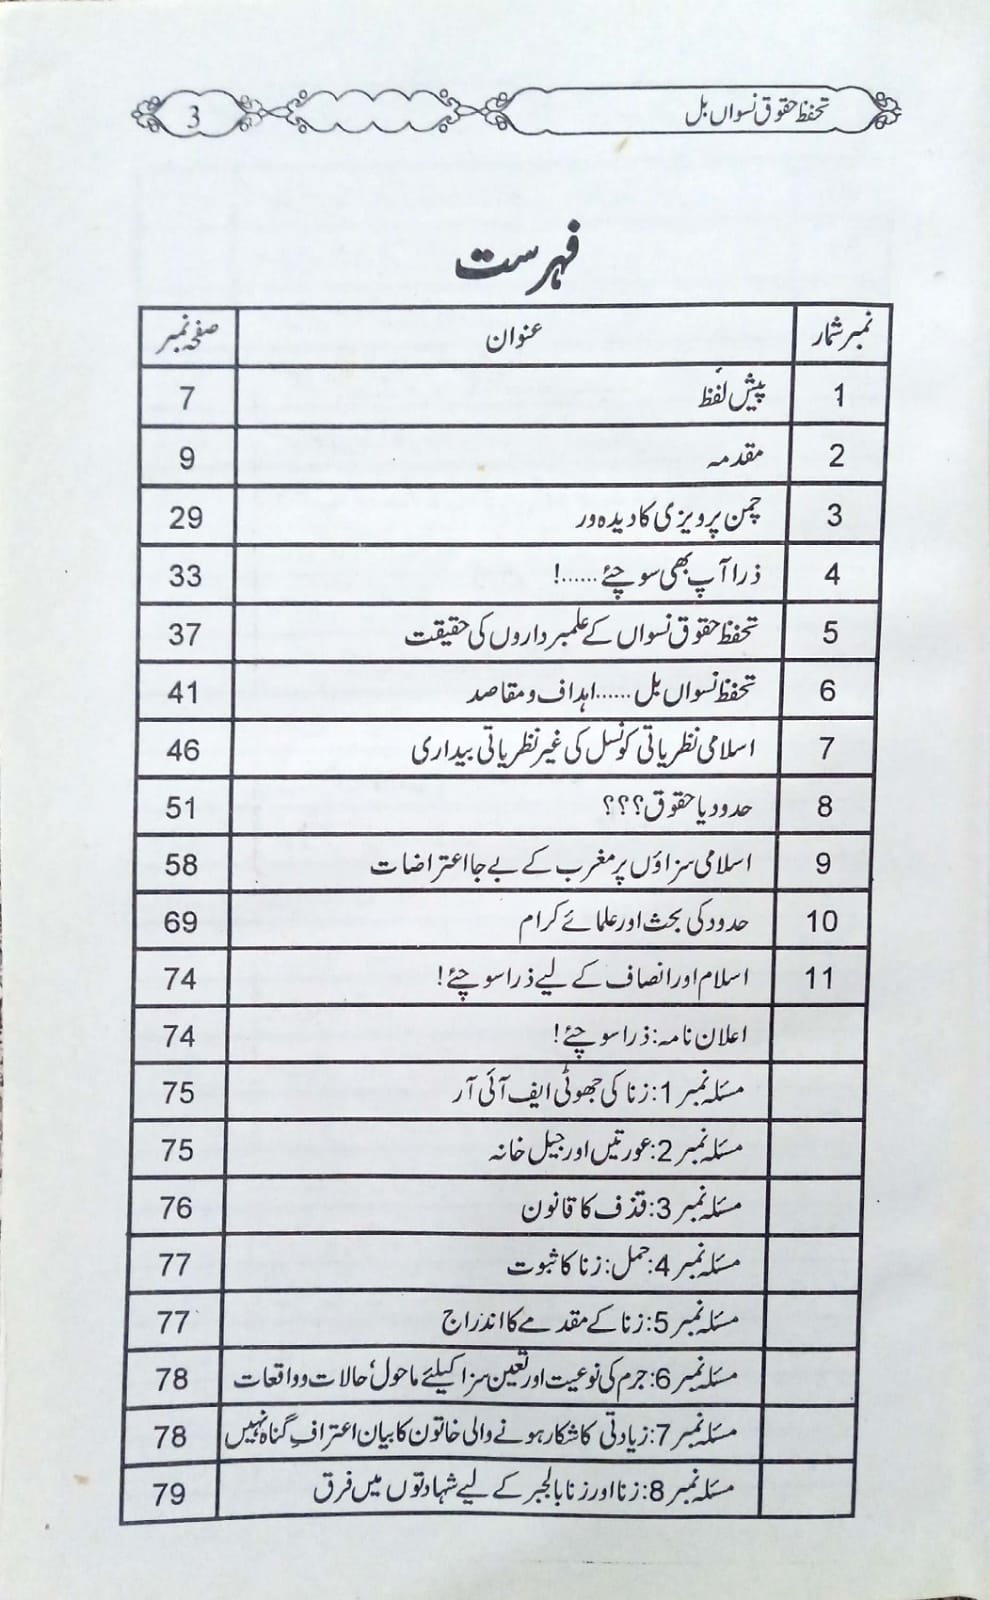 تحفظ حقوق نسواں بل 3
فہرست
نمبر شمار عنوان صفحہ نمبر
1 پیش لفظ 7
2 مقدمہ 9
3 چمن پرویزی کا دیدہ ور 29
4 ذرا آپ بھی سوچئے......! 33
5 تحفظ حقوق نسواں کے علمبرداروں کی حقیقت 37
6 تحفظ نسواں بل......اہداف و مقاصد 41
7 اسلامی نظریاتی کونسل کی غیر نظریاتی بیداری 46
8 حدود یا حقوق؟؟؟ 51
9 اسلامی سزاؤں پر مغرب کے بے جا اعتراضات 58
10 حدود کی بحث اور علمائے کرام 69
11 اسلام اور انصاف کے لیے ذرا سوچئے! 74
اعلان نامہ: ذرا سوچئے! 74
مسئلہ نمبر 1: زنا کی جھوٹی ایف آئی آر 75
مسئلہ نمبر 2: عورتیں اور جیل خانہ 75
مسئلہ نمبر 3: قذف کا قانون 76
مسئلہ نمبر 4: حمل: زنا کا ثبوت 77
مسئلہ نمبر 5: زنا کے مقدمے کا اندراج 77
مسئلہ نمبر 6: جرم کی نوعیت اور تعین سزا کیلئے ماحول، حالات و واقعات 78
مسئلہ نمبر 7: زیادتی کا شکار ہونے والی خاتون کا بیان اعترافِ گناہ نہیں 78
مسئلہ نمبر 8: زنا اور زنا بالجبر کے لیے شہادتوں میں فرق 79